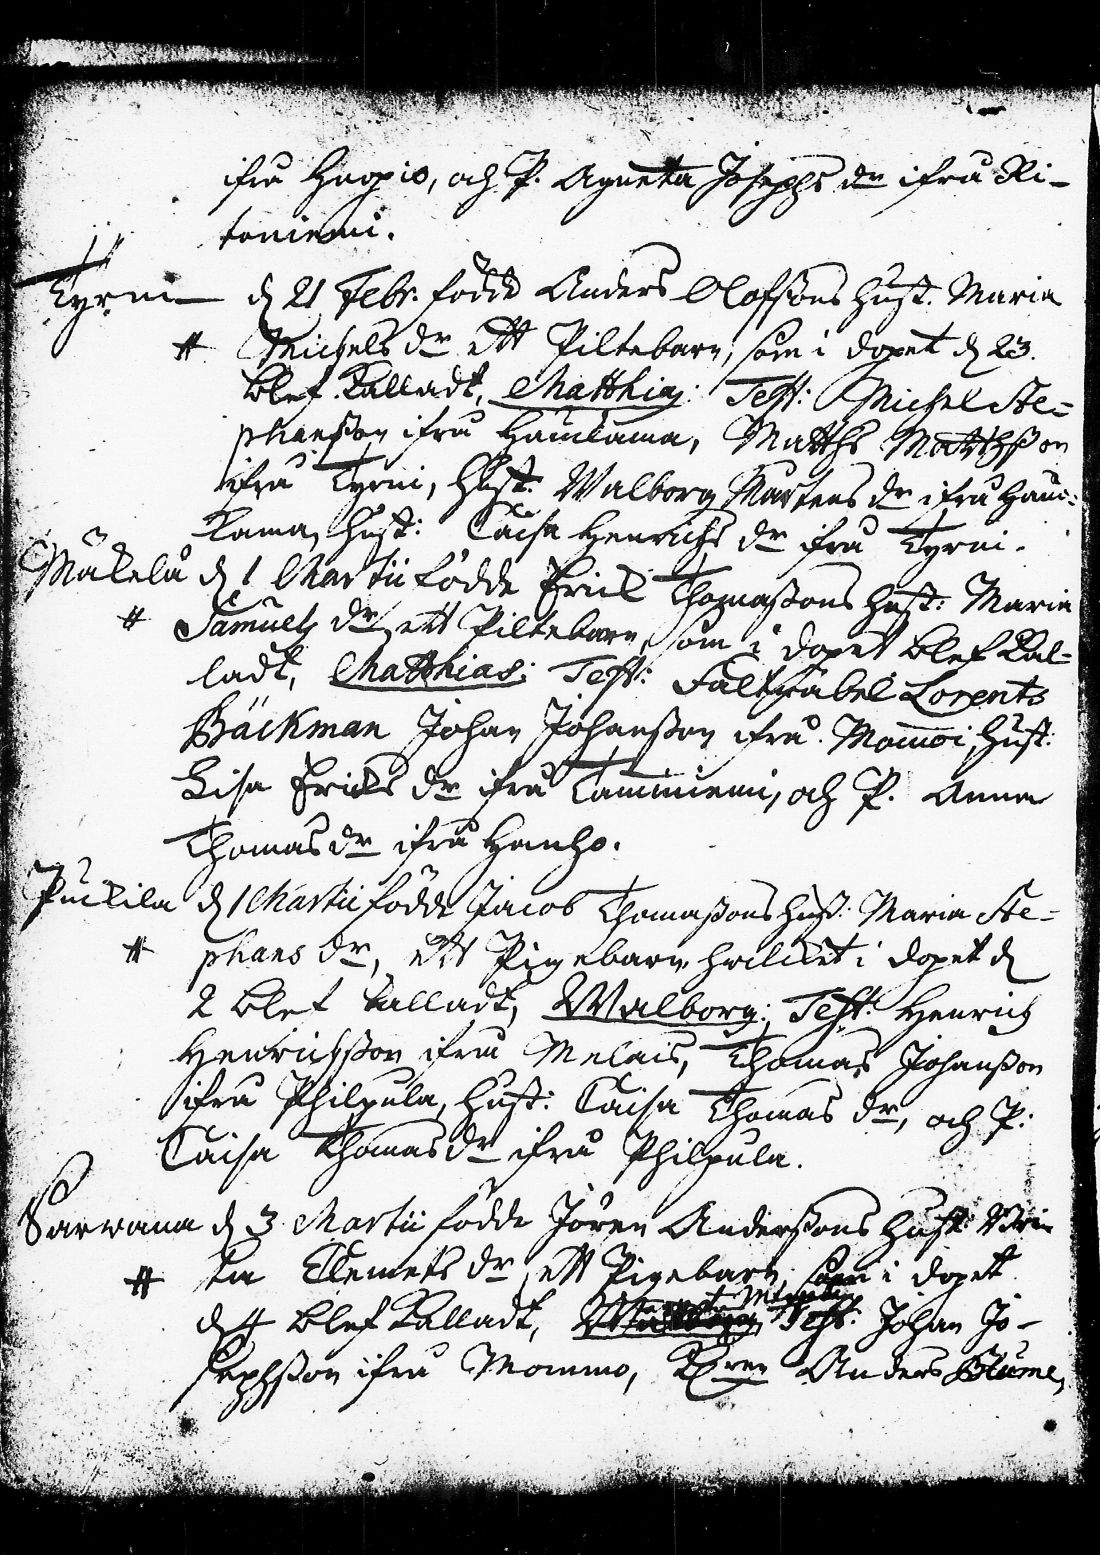 ifrå Haapio, och P. Agneta Josephs dr ifrå Ri-
toniemi.
Tyrni d 21 Febr. födde Anders Olofssons Hust. Maria
# Michels dr ett Piltebarn, som i dopet d 23.
blef kalladt, Matthias: Test: Michel Ste-
phansson ifrå Hauklama, Matths Matthsson
ifrå Tyrni, Hust: Walborg Mårtens dr ifrå Hauc-
lama, Hust: Caisa Henrichs dr ifrå Tyrni.
Mäkelä d 1 Martii födde Erich Thomassons Hust: Maria
# Samuels dr, ett Piltebarn, som i dopet blef kal-
ladt, Matthias: Test: Lorents
Bäckman Johan Johansson ifrå Hust:
Lisa Erichs dr ifrå Tammiemi, och P. Anna
Thomas dr ifrå Hanho.
Puckila d 1 Martii födde Jacob Thomassons Hust: Maria Ste-
# phans dr, ett Pigebarn, hwilcket i dopet d
2 blef kalladt, Walborg; Test: Henrich
Henrichsson ifrå Melais, Thomas Johansson
ifrå Philpula, Hust: Caisa Thomas dr, och P.
Caisa Thomas dr ifrå Philpula.
Sarwana d 3 Martii födde Jören Anderssons Hust: Bri-
# ta Clemets dr, ett Pigebarn, som i dopet
d 4 blef kalladt, Test: Johan Jo-
sephsson ifrå Mommo, Anders Blume,